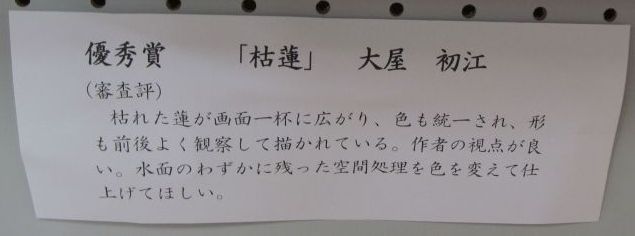 優秀賞　「枯蓮」　大屋　初江
（審査評）
枯れた蓮が画面一杯に広がり、色も統一され、形
も前後よく観察して描かれている。作者の視点が良
い。水面のわずかに残った空間処理を色を変えて仕
上げてほしい。